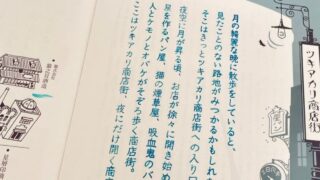 月の綺麗な晩に散歩をしていると、
見たことのない路地がみつかるかもしれ
そこはきっとツキアカリ商店街への入り口
夜空に月が昇る頃、お店が徐々に開き始め
足を作るパン屋、猫の煙草屋、吸血鬼のバ
人とケモノとオバケがそぞろ歩く商店街。
ここはツキアカリ商店街、夜にだけ開く商店
ツキアカリ商店街